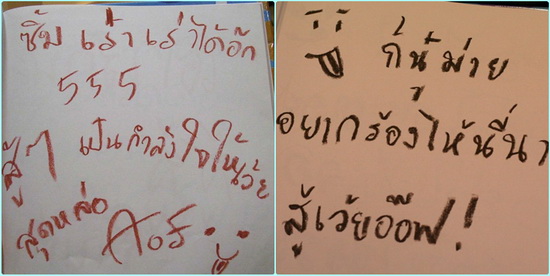 ซิ้ม เร้าเร่าได้อีก
555
สู้ๆ เป็นกำลังใจให้เว้ย
สุดหล่อ
กี่นู๋ม่าย
อยากร้องไห้นี่นา
สู้เว้ยอ๊อฟ!